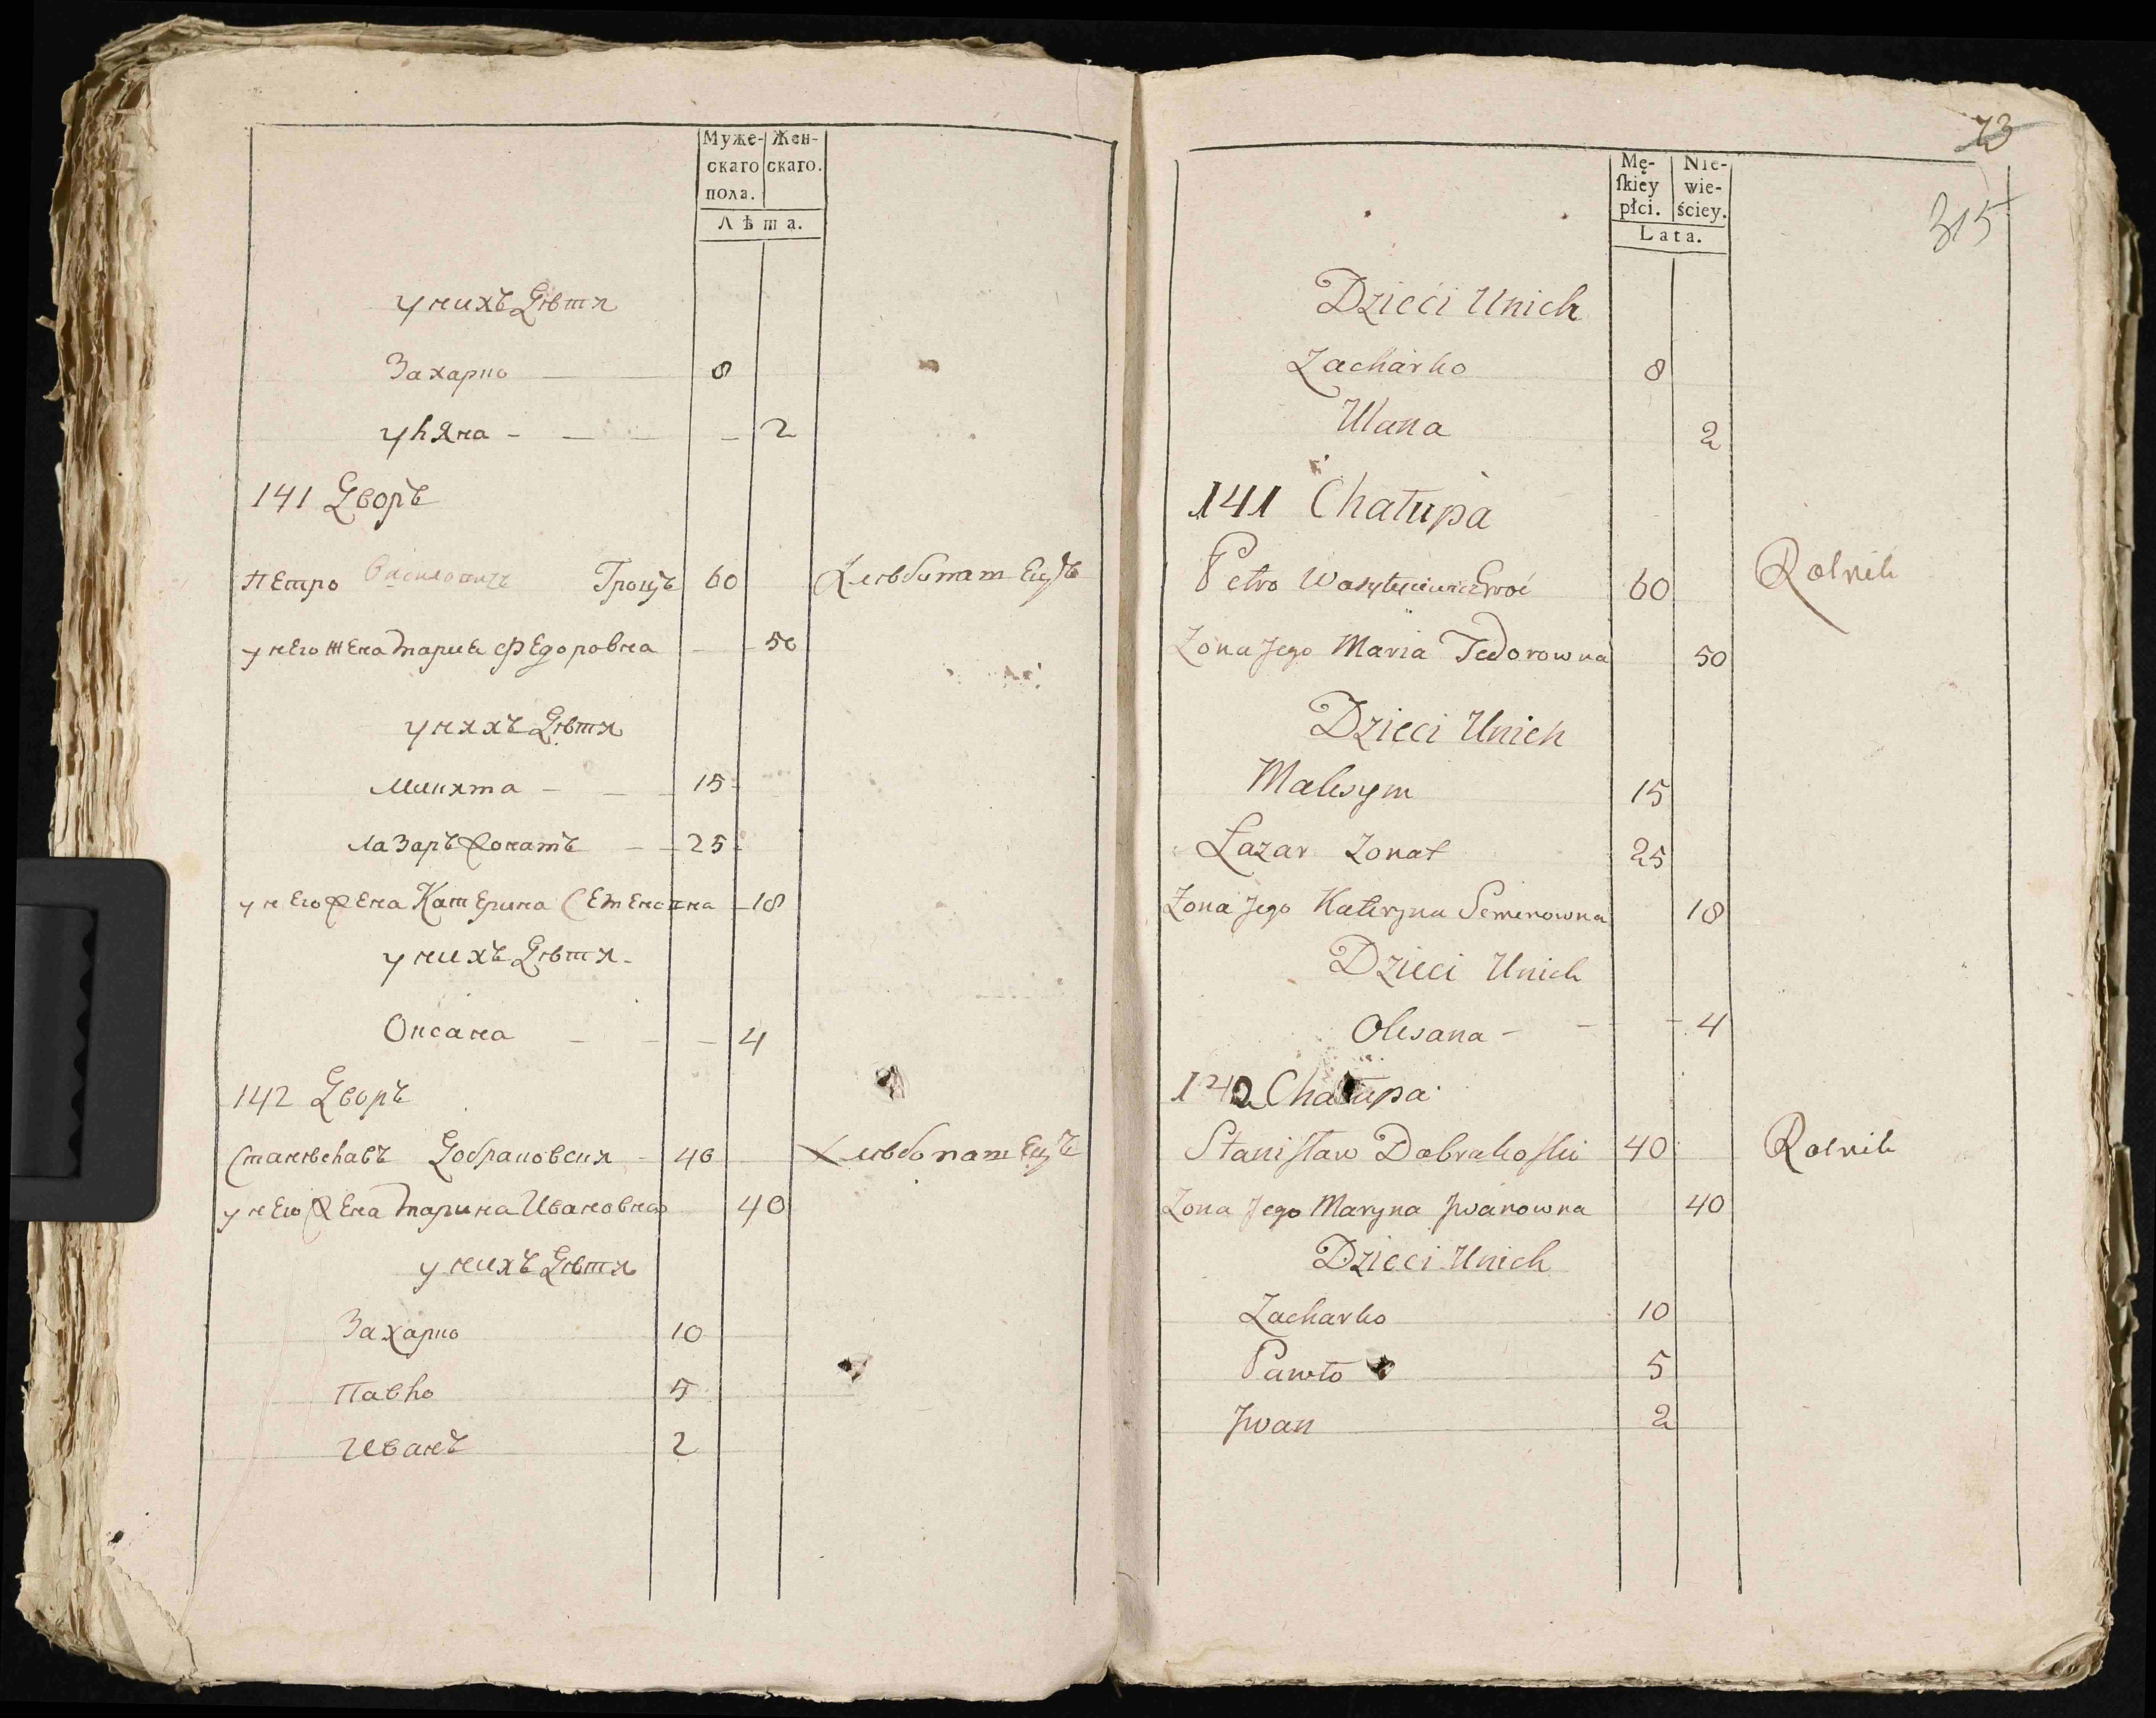 Муже- Жен-
скаго скаго.
пола.
Лѣта.
у нихъ Дѣтя
Захарко 8
Уляна - - - - 2
141 Дворъ
Петро Василовичъ Гроцъ 60 Хлѣбопашецъ
у него жена Мария Федоровна - 50
у няхъ Дѣтя
Микята - - - 15
Лазаръ Жонатъ - - 25
у него жена Катерина Семеновна - 18
у нихъ Дѣтя -
Оксана - - - 4
142 Дворъ
Станѣславъ Добраковскя - 40 Хлѣбопашецъ
у него жена Марина Ивановна 40
у нихъ Дѣтя
Захарко 10
Павло 5
Иванъ 2
73
315
Mę- Nie-
ſkiey wie-
płci. ściey.
Lata.
Dzieci Unich
Zacharko 8
Ulana 2
141 Chałupa
Petro 60 Rolnik
Zona Jego Maria Fedorowna 50
Dzieci Unich
Maksym 15
Łazar Zonat 25
Zona Jego Kateryna Semenowna 18
Dzieci Unich
Oksana - - - 4
142 Chałupa
Staniſław Dobrakoſki 40 Rolnik
Zona Jego Maryna Jwanowna 40
Dzieci Unich
Zacharko 10
Pawło 5
Jwan 2